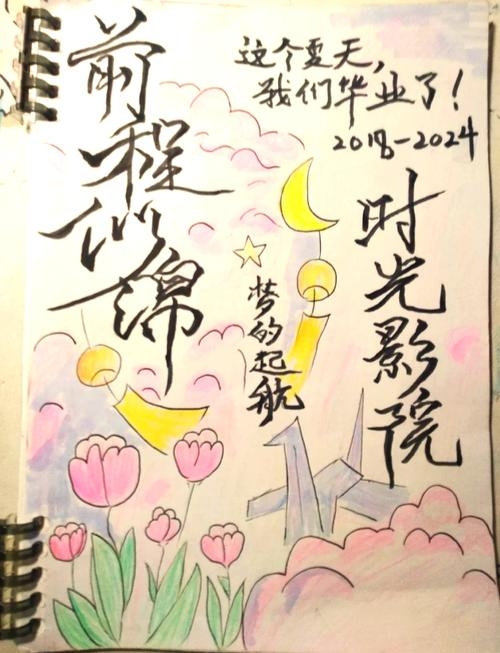 前程似锦
这个夏天，
我们毕业了！
2018-2024
时光影院
梦的起航